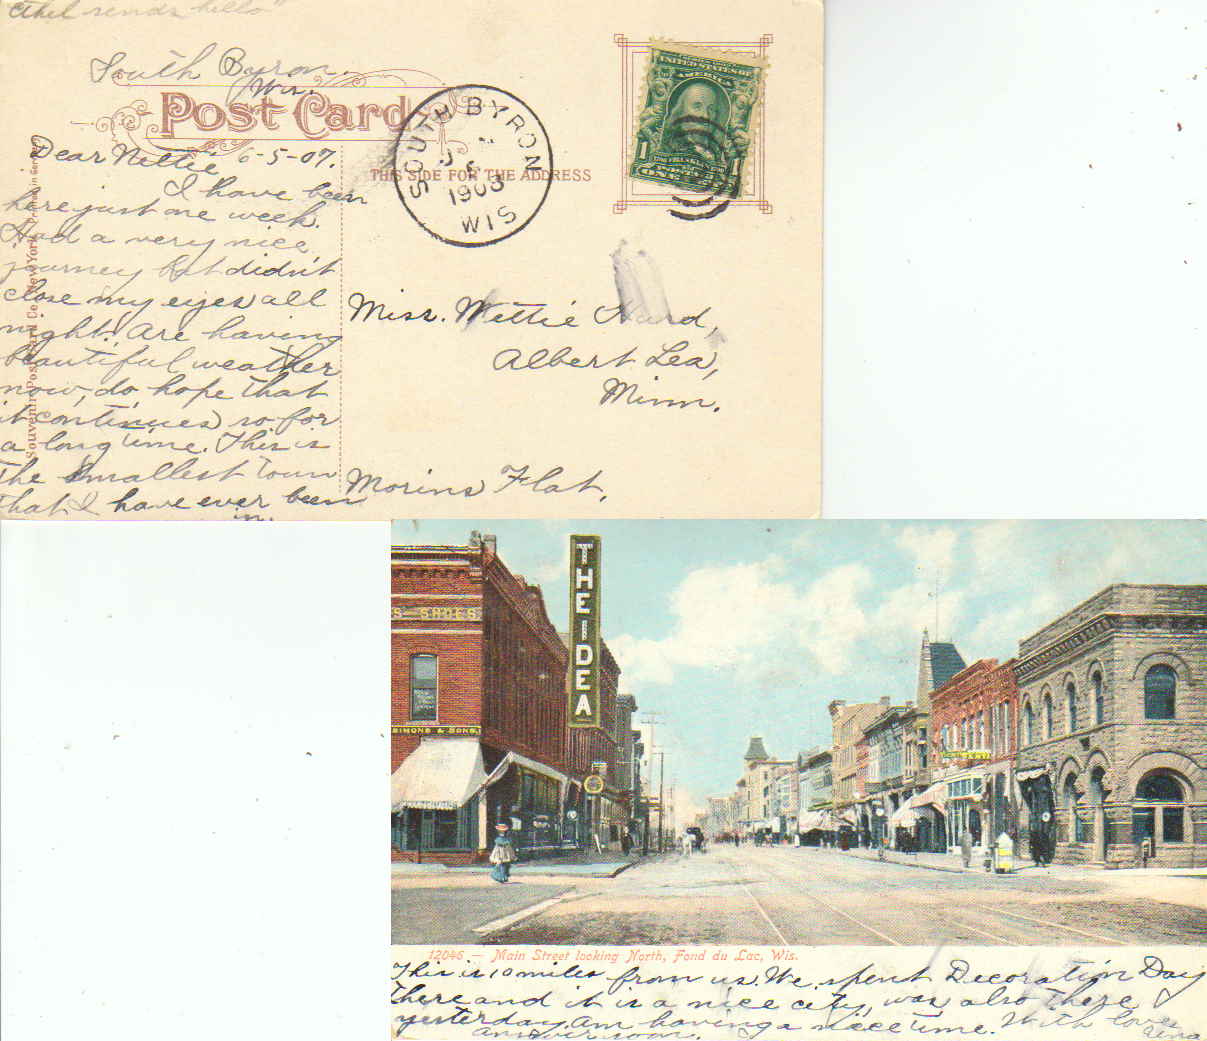 Ethel sends hello"
South Byron.
Wis.
Post Card
THIS SIDE FOR THE ADDRESS
SOUTH BYRON
1908
WIS
UNITED STATES OF
AMERICA
1 1
POSTAGE
ONE
Dear Nettie 6-5-07.
I have been
here just one week.
Had a very nice
journey but didn't
close my eyes all
night. Are having
beautiful weather
now, do hope that
it continues so for
a long time. This is
the smallest town
that I have ever been
in.
Souvenir Post Card Co. New York Printed in Germany
Miss. Nettie Hard,
Albert Lea,
Minn.
Morins Flat.
THE IDEA
S-SHOES
SIMONS & SONS
12046 — Main Street looking North, Fond du Lac, Wis.
This is 10 miles from us. We spent Decoration Day
there and it is a nice city, was also there
yesterday. Am having a nice time. With love
answer soon.